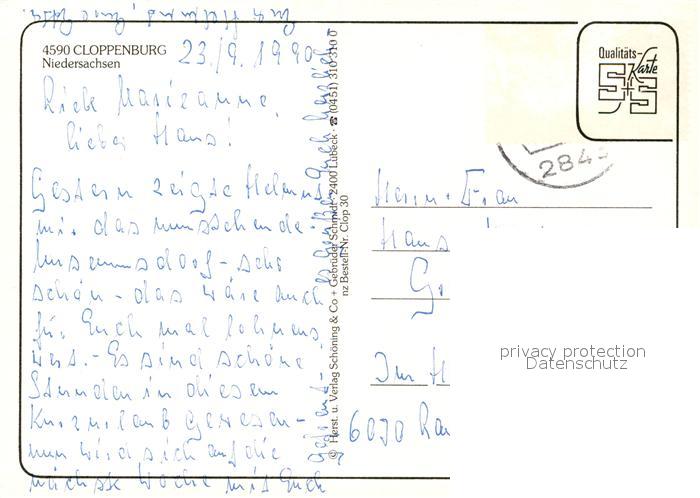 4590 CLOPPENBURG
Niedersachsen
23./9. 1990
Liebe Marieanne,
lieber Hans!
Gestern zeigte Helmut
mir das
Museumsdorf - sehr
schön - das wäre auch
für Euch mal lohnens
wert. - Es sind schöne
Stunden in diesem
Kurzurlaub gewesen -
nun wird sich auf die
nächste Woche mit Euch
gefreut -
es grüßt Euch herzlich
© Herst. u. Verlag Schöning & Co + Gebrüder Schmidt · 2400 Lübeck · ☎ (0451) 310 310 0
nz Bestell-Nr. Clop 30
Qualitäts-
Karte
S+S
284
Herrn + Frau
Hans
Im H
6070
privacy protection
Datenschutz